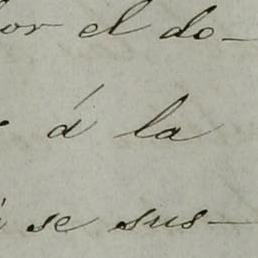 por el do-
á la
se sus-